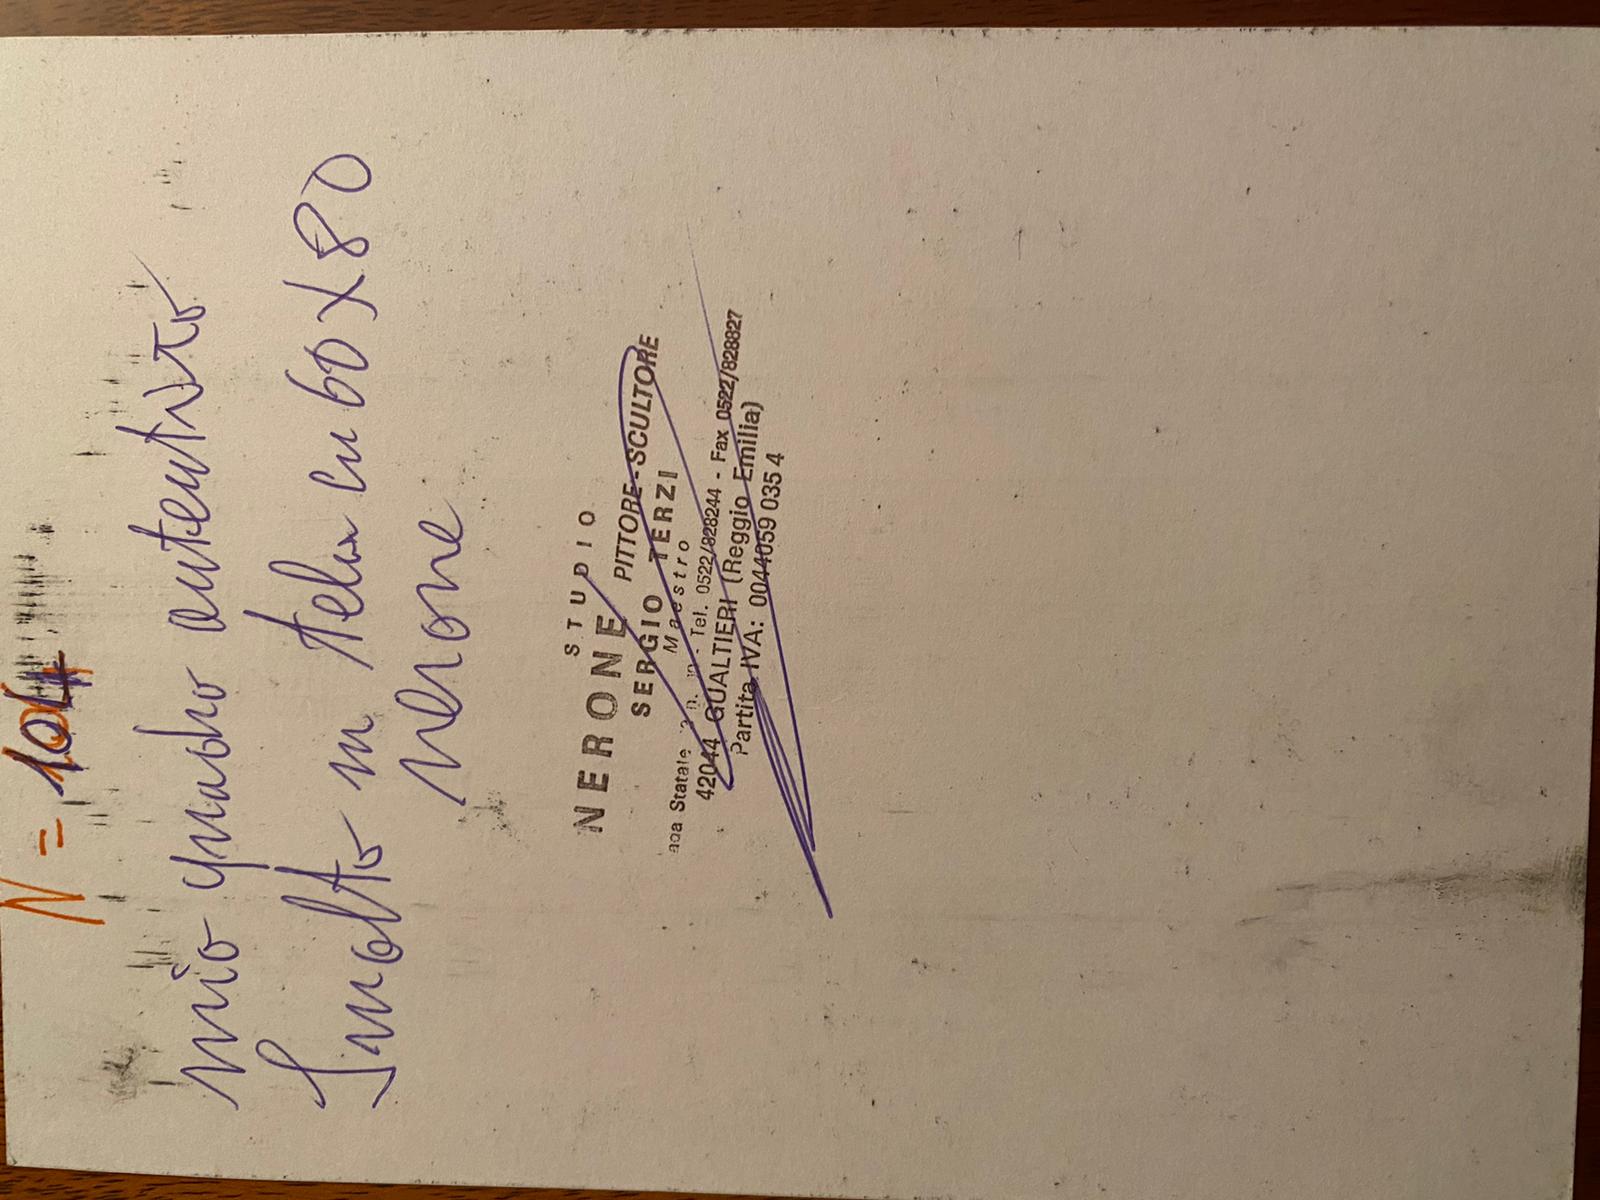 N = 104
mio quadro autentito
Smalto in tela cm 60 X 80
nerone
STUDIO
NERONE PITTORE-SCULTORE
SERGIO TERZI
Maestro
Statale n. - Tel. 0522/828244 - Fax 0522/828827
42044 GUALTIERI (Reggio Emilia)
Partita IVA: 0044059 035 4